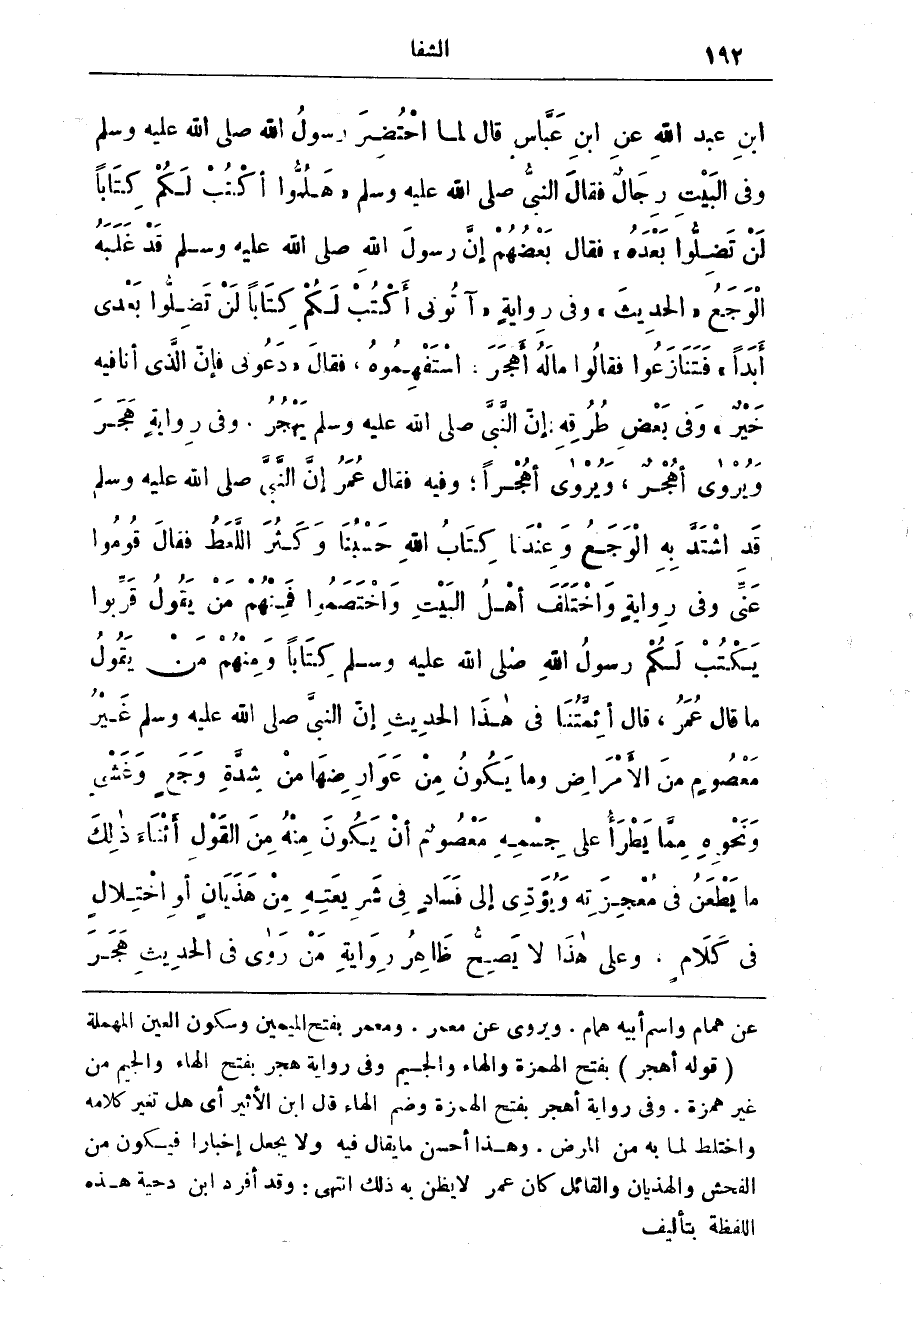 ١٩٢
الشفا
ابنِ عبد اللهِ عنِ ابنِ عَبَّاسٍ قال لمـا احْتُضِرَ رسولُ اللهِ صلى الله عليه وسلم
وفى الْبَيْتِ رِجَالٌ فقالَ النبىُّ صلى الله عليه وسلم «هَـلُمُّوا أكْتُبْ لَـكُمْ كِتَاباً
لَنْ تَضِـلُّوا بَعْدَهُ» فقال بَعْضُهُمْ إنَّ رسولَ اللهِ صلى الله عليه وسـلم قَدْ غَلَبَهُ
الْوَجَعُ «الحديثَ» وفى رِوايةٍ «آتُونى أَكْتُبْ لَـكُمْ كِتَاباً لَنْ تَضِـلُّوا بَعْدى
أَبَداً» فَتَنَازَعُوا فقالُوا مالَهُ أَهَجَرَ : اسْتَفْهِـمُوهُ، فقالَ «دَعُونى فإنّ الَّذى أنافيه
خَيْرٌ» وَفى بَعْضِ طُرُقِهِ: إنّ النَّبىَّ صلى الله عليه وسلم يَهْجُرُ . وفى رِوايةٍ هَجَـرَ
وَيُرْوٰى أهُجْـرٌ ، وَيُرْوٰى أهُجْـراً ؛ وفيه فقال عُمَرُ إنَّ النَّبىَّ صلى الله عليه وسلم
قَدِ اشْتَدَّ بِهِ الْوَجَـعُ وَعِنْدَنا كِتَابُ اللهِ حَسْبُنَا وَكَـثُرَ اللَّغَطُ فقالَ قُومُوا
عَنِّى وفى رِوايةٍ وَاخْتَلَفَ أهْـلُ البَيْتِ وَاخْتَصَمُوا فَمِنْهُمْ مَنْ يَقُولُ قَرِّبوا
يَـكْتُبْ لَـكُمْ رسولُ اللهِ صْلى الله عليه وسـلم كِتَاباً وَمِنْهُمْ مَنْ يَقُولُ
ما قال عُمَرُ ، قال أئِمَّتُنَا فى هٰـذَا الحديثِ إنّ النبىَّ صلى الله عليه وسلم غَـيْرُ
مَعْصُومٍ منَ الأَمْرَاضِ وما يَـكُونُ مِنْ عَوَارِضِهَا منْ شِدَّةِ وَجَعٍ وَغَشْىٍ
وَنَحْوِهِ مِمَّا يَطْرَأُ على جِسْمِـهِ مَعْصُومٌ أنْ يَـكُونَ مِنْهُ مِنَ القَوْلِ أَثْنَاءَ ذٰلِكَ
ما يَطْعَنُ فى مُعْجِـزَتِه وَيُؤَدِّى إلى فَسَادٍ فِى شَرِيعَتِـهِ مِنْ هَذَيَانٍ أوِ اخْتِـلالٍ
فى كَلَامٍ . وعلى هٰذَا لا يَصِـحُّ ظَاهِرُ رِوايةِ مَنْ رَوٰى فى الحديثِ هَجَـرَ
عن همام واسم أبيه همام . ويروى عن معمر . ومعمر بفتح الميمين وسكون العين المهملة
( قوله أهجر ) بفتح الهمزة والهاء والجـيم وفى رواية هجر بفتح الهاء والجيم من
غير همزة . وفى رواية أهجر بفتح الهمزة وضم الهاء قال ابن الأثير أى هل تغير كلامه
واختلط لما به من المرض . وهـذا أحسن مايقال فيه ولا يجعل إخبارا فيـكون من
الفحش والهذيان والقائل كان عمر لايظن به ذلك انتهى : وقد أفرد ابن دحية هـذه
اللفظة بتأليف